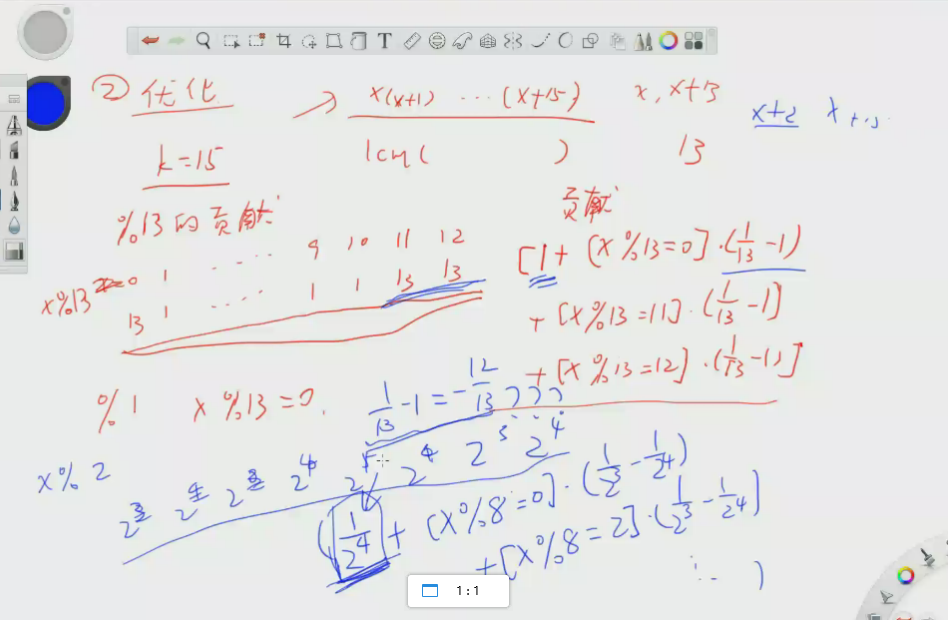 ② 优化
x(x+1) ... (x+15)
lcm( )
x, x+13
13
x+2 x+15
k=15
%13的贡献
贡献
9 10 11 12
x%13 0 1 ....
13 1 .... 1 1 13 13
[1+ [x%13=0]·(1/13 -1)
+ [x%13=11]·(1/13 -1]
+ [x%13=12]·(1/13 -1)]
%1 x%13=0.
1/13 -1 = -12/13
x%2
2^4 2^4 2^3 2^4
(1/2^4 + [x%8=0]·(1/2^3 - 1/2^4)
+[x%8=2]·(1/2^3 - 1/2^4]
... )
1:1